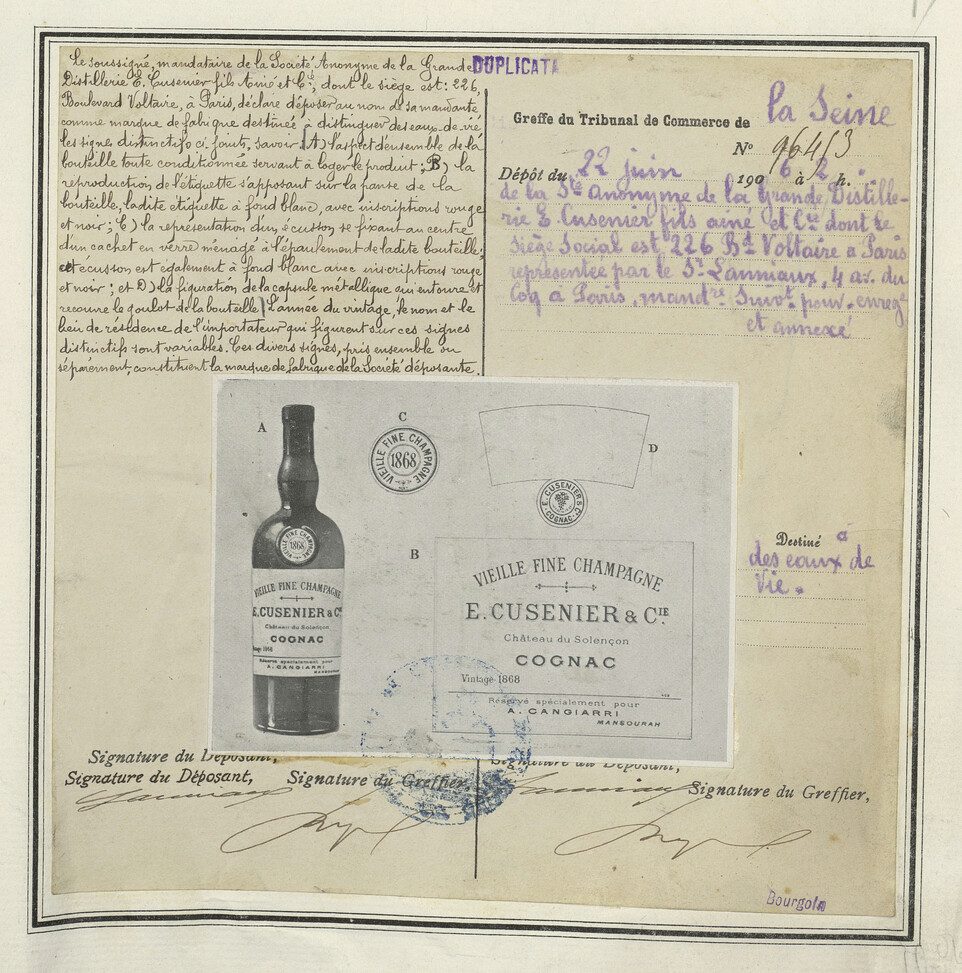 Le soussigné, mandataire de la Société Anonyme de la Grande
Distillerie E. Cusenier fils Ainé et Cie, dont le siège est: 226,
Boulevard Voltaire, à Paris, déclare déposer au nom de sa mandante
comme marque de fabrique destinée à distinguer des eaux-de-vie
les signes distinctifs ci-joints, savoir: A) l'aspect d'ensemble de la
bouteille toute conditionnée servant à loger le produit; B) la
reproduction de l'étiquette s'apposant sur la panse de la
bouteille, ladite étiquette à fond blanc, avec inscriptions rouge
et noir; C) la représentation d'un écusson se fixant au centre
d'un cachet en verre ménagé à l'épaulement de ladite bouteille;
cet écusson est également à fond blanc avec inscriptions rouge
et noir; et D) la figuration de la capsule métallique qui entoure et
recouvre le goulot de la bouteille / L'année du vintage, le nom et le
lieu de résidence de l'importateur qui figurent sur ces signes
distinctifs sont variables. Ces divers signes, pris ensemble ou
séparément, constituent la marque de fabrique de la Société déposante.
DUPLICATA
Greffe du Tribunal de Commerce de la Seine
No 96453
Dépôt du 22 juin 1906 à 2 h.
de la Sté Anonyme de la Grande Distille-
rie E. Cusenier fils ainé et Cie dont le
Siège Social est 226 Bd Voltaire a Paris
représentée par le Sr Launiaux, 4 av. du
Coq à Paris, mandre Suivt pouv. enregé
et annexé
A
C
VIEILLE FINE CHAMPAGNE
1868
D
E. CUSENIER & Cie
COGNAC
VIEILLE FINE CHAMPAGNE
1868
VIEILLE FINE CHAMPAGNE
E. CUSENIER & Cie
Château du Solençon
COGNAC
Vintage 1868
Réservé spécialement pour
A. CANGIARRI
MANSOURAH
B
VIEILLE FINE CHAMPAGNE
E. CUSENIER & CIE.
Château du Solençon
COGNAC
Vintage 1868
Réservé spécialement pour
A. CANGIARRI
MANSOURAH
Destiné à
des eaux de
Vie.
Signature du Déposant,
Signature du Déposant, Signature du Greffier,
Signature du Déposant,
Signature du Greffier,
Bourgoin